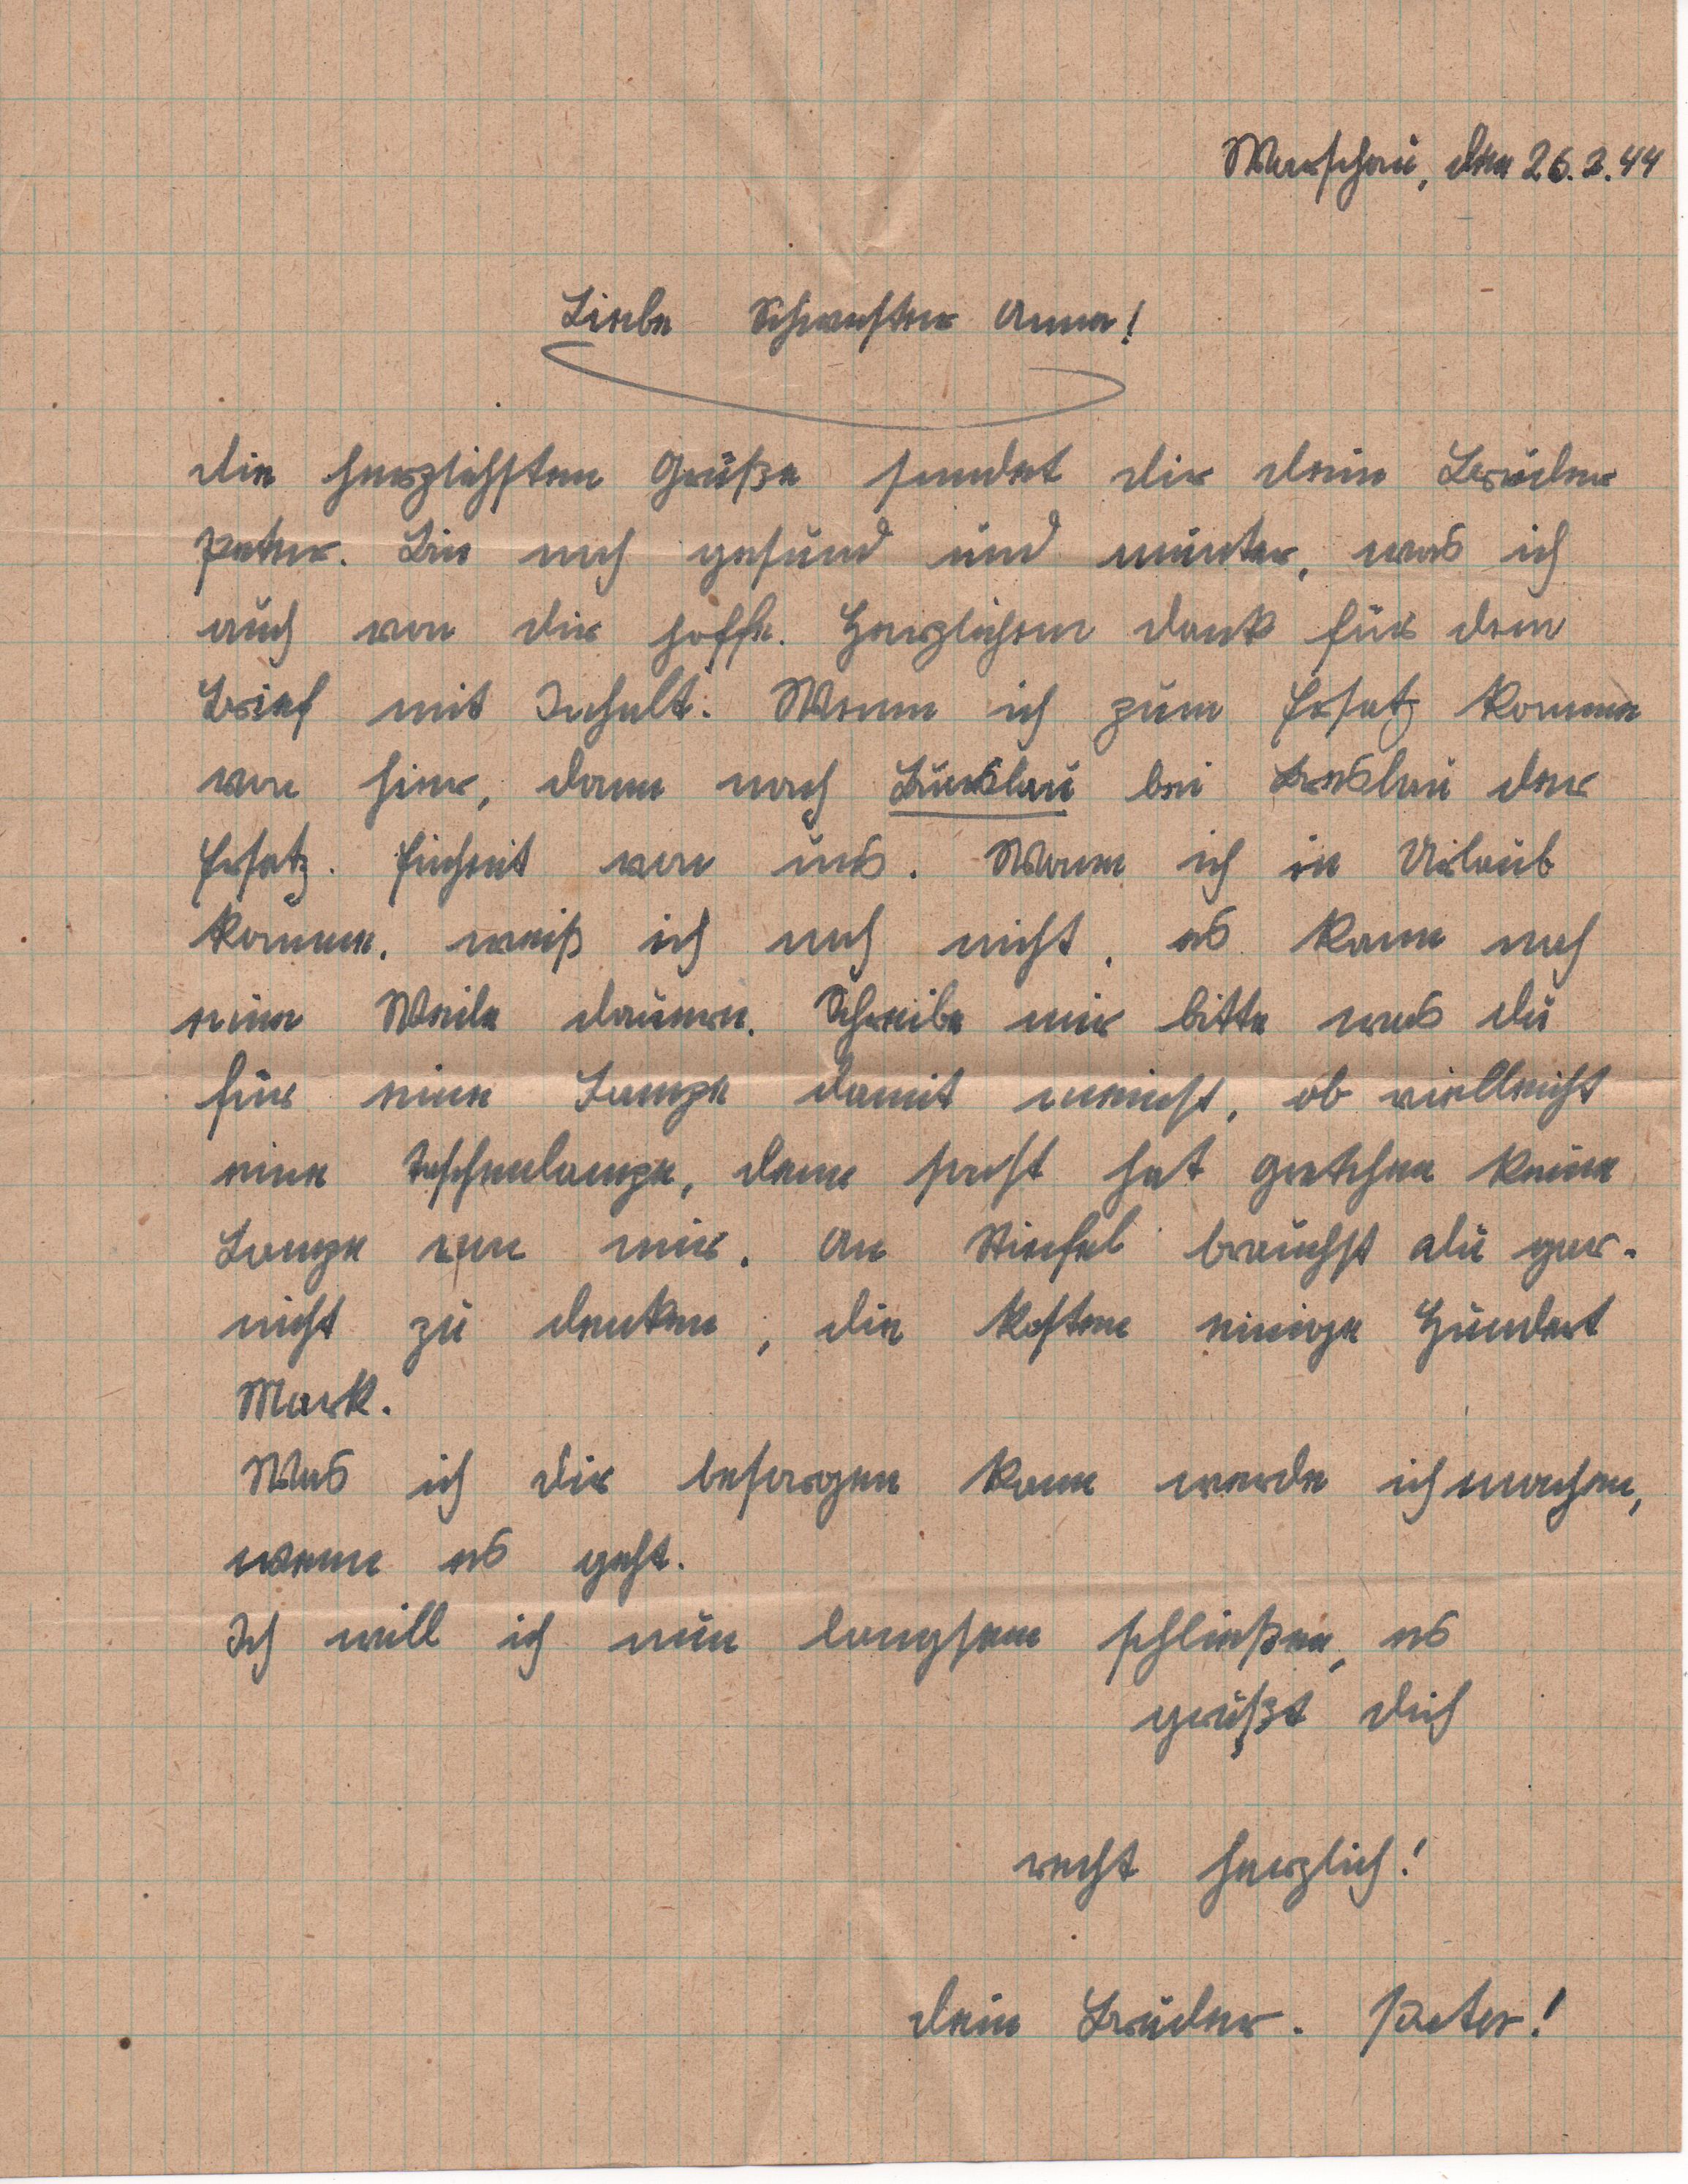 Warschau, den 26.2.44
Liebe Schwester Anna!
die herzlichsten Grüße sendet dir dein Bruder
Peter. Bin noch gesund und munter, was ich
auch von dir hoffe. Herzlichen dank für den
Brief mit Inhalt. Wenn ich zum Ersatz komme
von hier, dann nach Bunslau bei Breslau der
Ersatz. Einheit von uns. Wann ich in Urlaub
komme, weiß ich noch nicht, es kann noch
eine Weile dauern. Schreibe mir bitte was du
für eine Lampe damit meinst, ob vielleicht
eine taschenlampe, denn sonst hat gretchen keine
Lampe von mir. An Stiefel brauchst du gar-
nicht zu denken, die kosten einige Hundert
Mark.
Was ich dir besorgen kann werde ich machen,
wenn es geht.
Ich will ich nun langsam schließen, es
grüßt dich
recht herzlich!
dein Bruder. Peter!